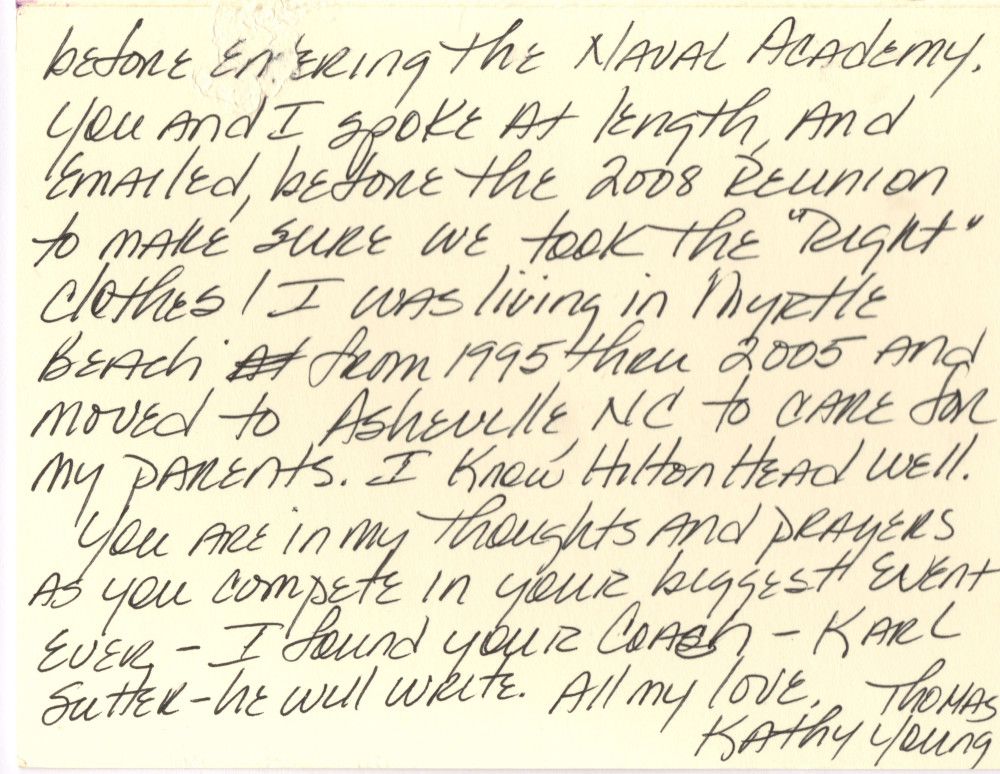 before entering the Naval Academy.
You and I spoke at length, and
Emailed, before the 2008 Reunion
to make sure we took the "Right"
clothes! I was living in Myrtle
Beach at from 1995 thru 2005 and
moved to Asheville, NC to care for
my parents. I know Hilton Head well.
You are in my thoughts and prayers
As you compete in your biggest event
ever - I found your Coach - Karl
Sutter - he will write. All my love, Thomas
Kathy Young